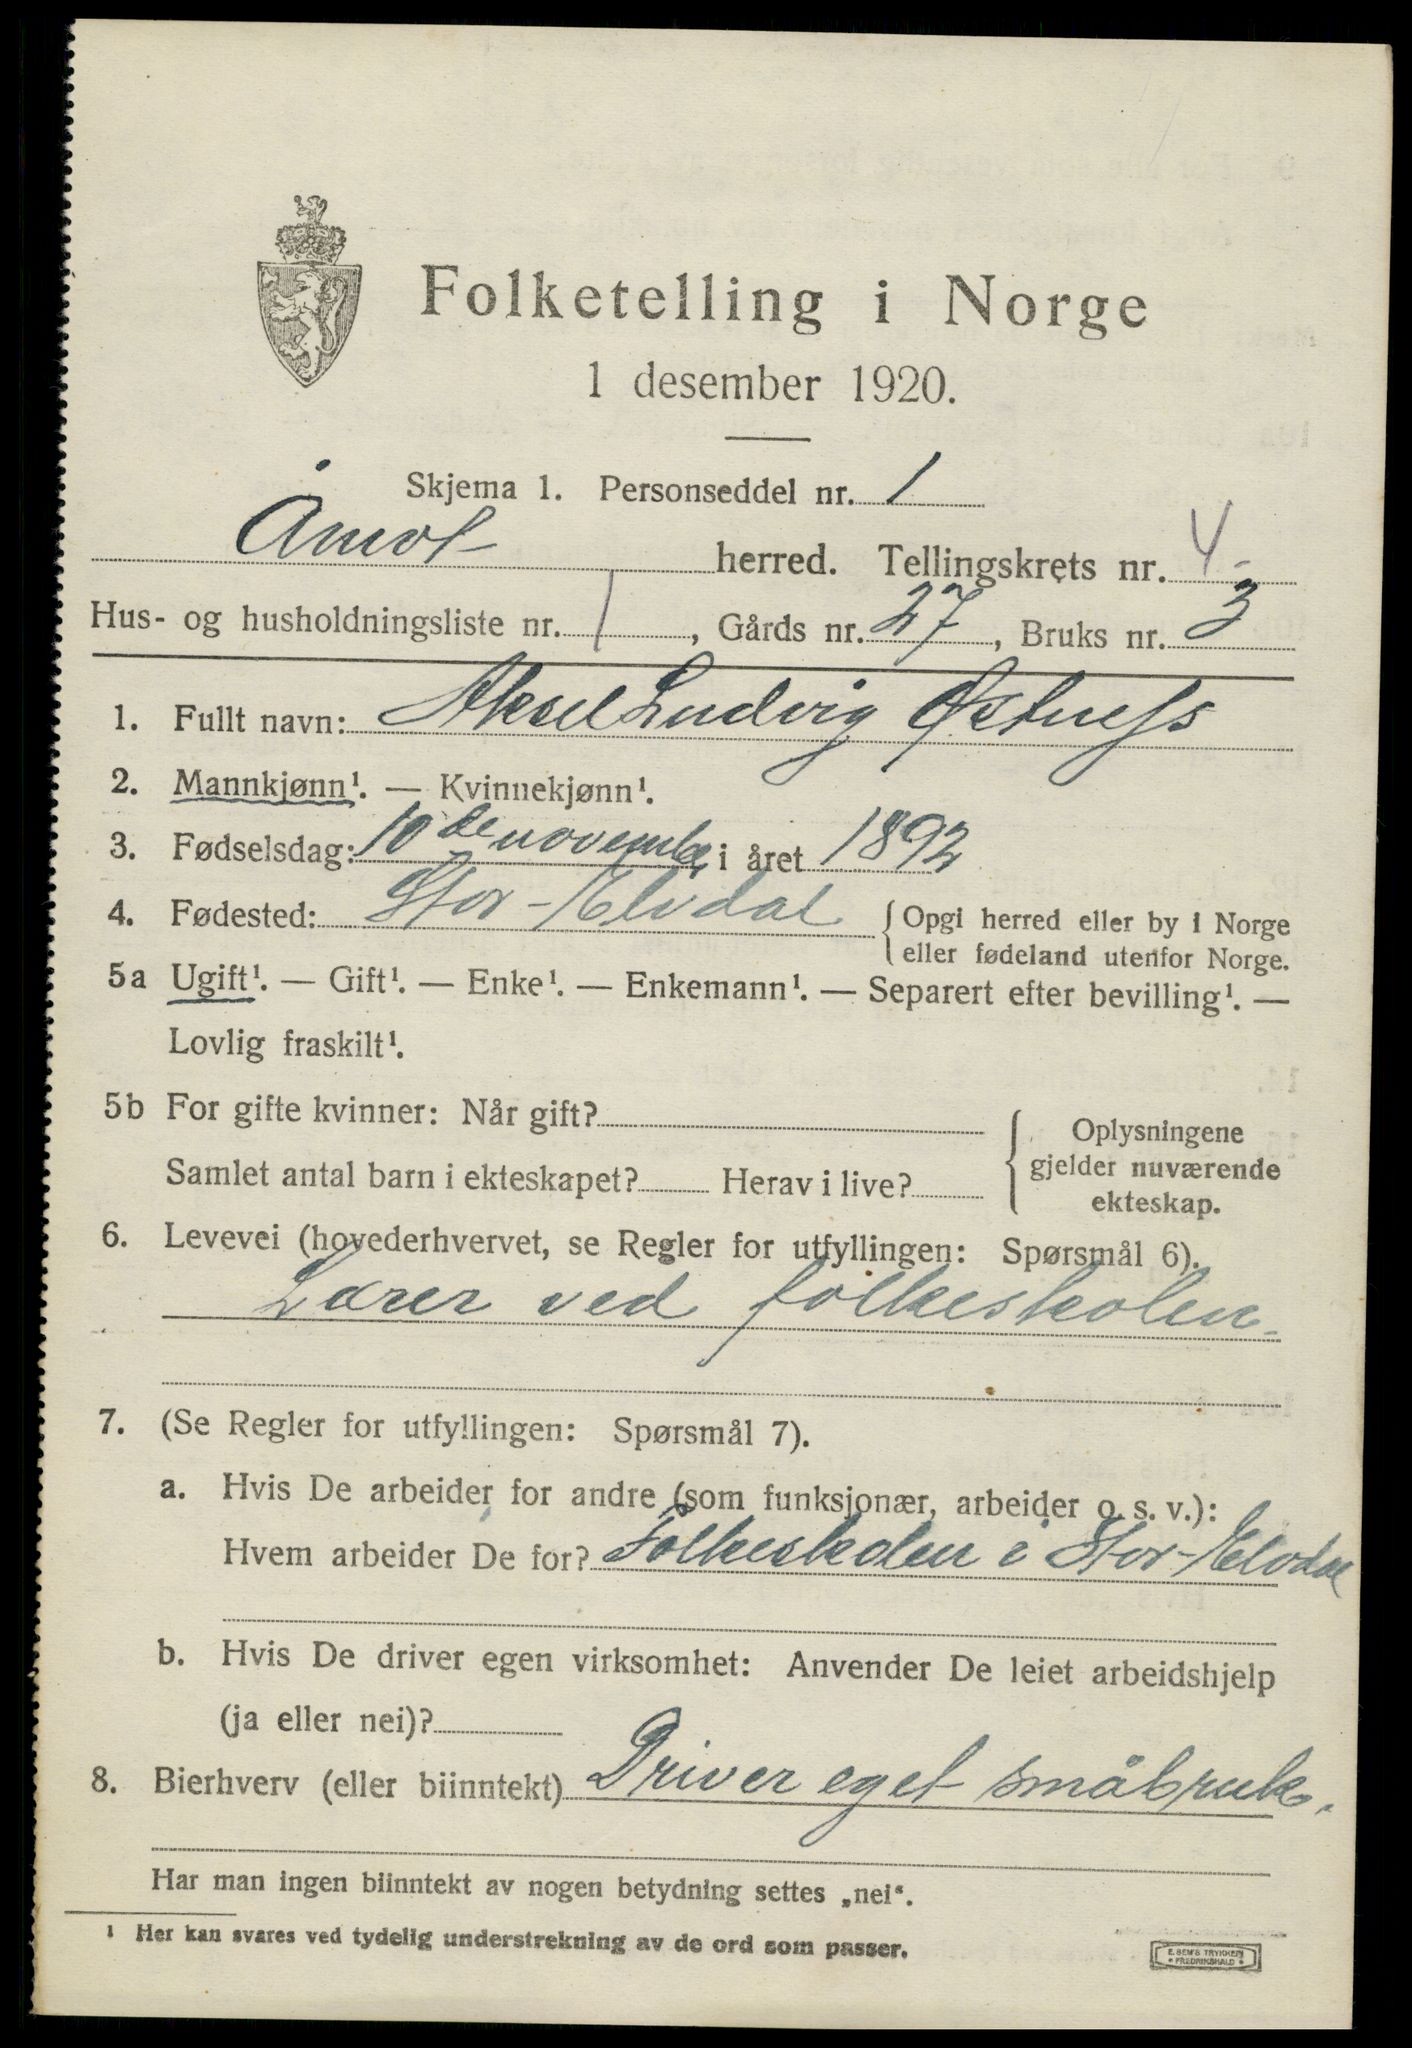 Folketelling i Norge
1 desember 1920.
Skjema 1. Personseddel nr. 1
Åmot herred. Tellingskrets nr. 4.
Hus- og husholdningsliste nr. 1, Gårds nr. 27, Bruks nr. 3
1. Fullt navn: Aksel Ludvig
2. Mannkjønn¹. — Kvinnekjønn¹.
3. Fødselsdag: 10de novembr i året 1892
4. Fødested: Stor-Elvdal {Opgi herred eller by i Norge
eller fødeland utenfor Norge.
5a Ugift¹. — Gift¹. — Enke¹. — Enkemann¹. — Separert efter bevilling¹. —
Lovlig fraskilt¹.
5b For gifte kvinner: Når gift?
Samlet antal barn i ekteskapet? Herav i live?
{Oplysningene
gjelder nuværende
ekteskap.
6. Levevei (hovederhvervet, se Regler for utfyllingen: Spørsmål 6).
Lærer ved folkeskolen.
7. (Se Regler for utfyllingen: Spørsmål 7).
a. Hvis De arbeider for andre (som funksjonær, arbeider o. s. v.):
Hvem arbeider De for? Folkeskolen i Stor-Elvdal
b. Hvis De driver egen virksomhet: Anvender De leiet arbeidshjelp
(ja eller nei)?
8. Bierhverv (eller biinntekt) Driver eget småbruk.
Har man ingen biinntekt av nogen betydning settes „nei“.
¹ Her kan svares ved tydelig understrekning av de ord som passer.
E. SEM'S TRYKKERI
• FREDRIKSHALD •